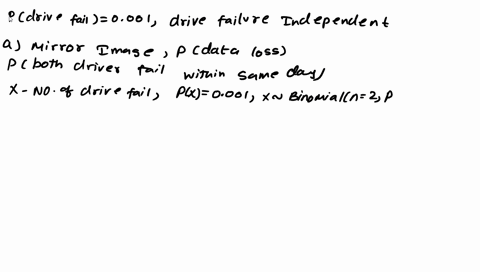 P(drive fail)=0.001, drive failure Independent
a) Mirror Image, P(data loss)
P(both driver fail within same day)
X - No. of drive fail, P(X)=0.001, X~ Binomial(n=2, P